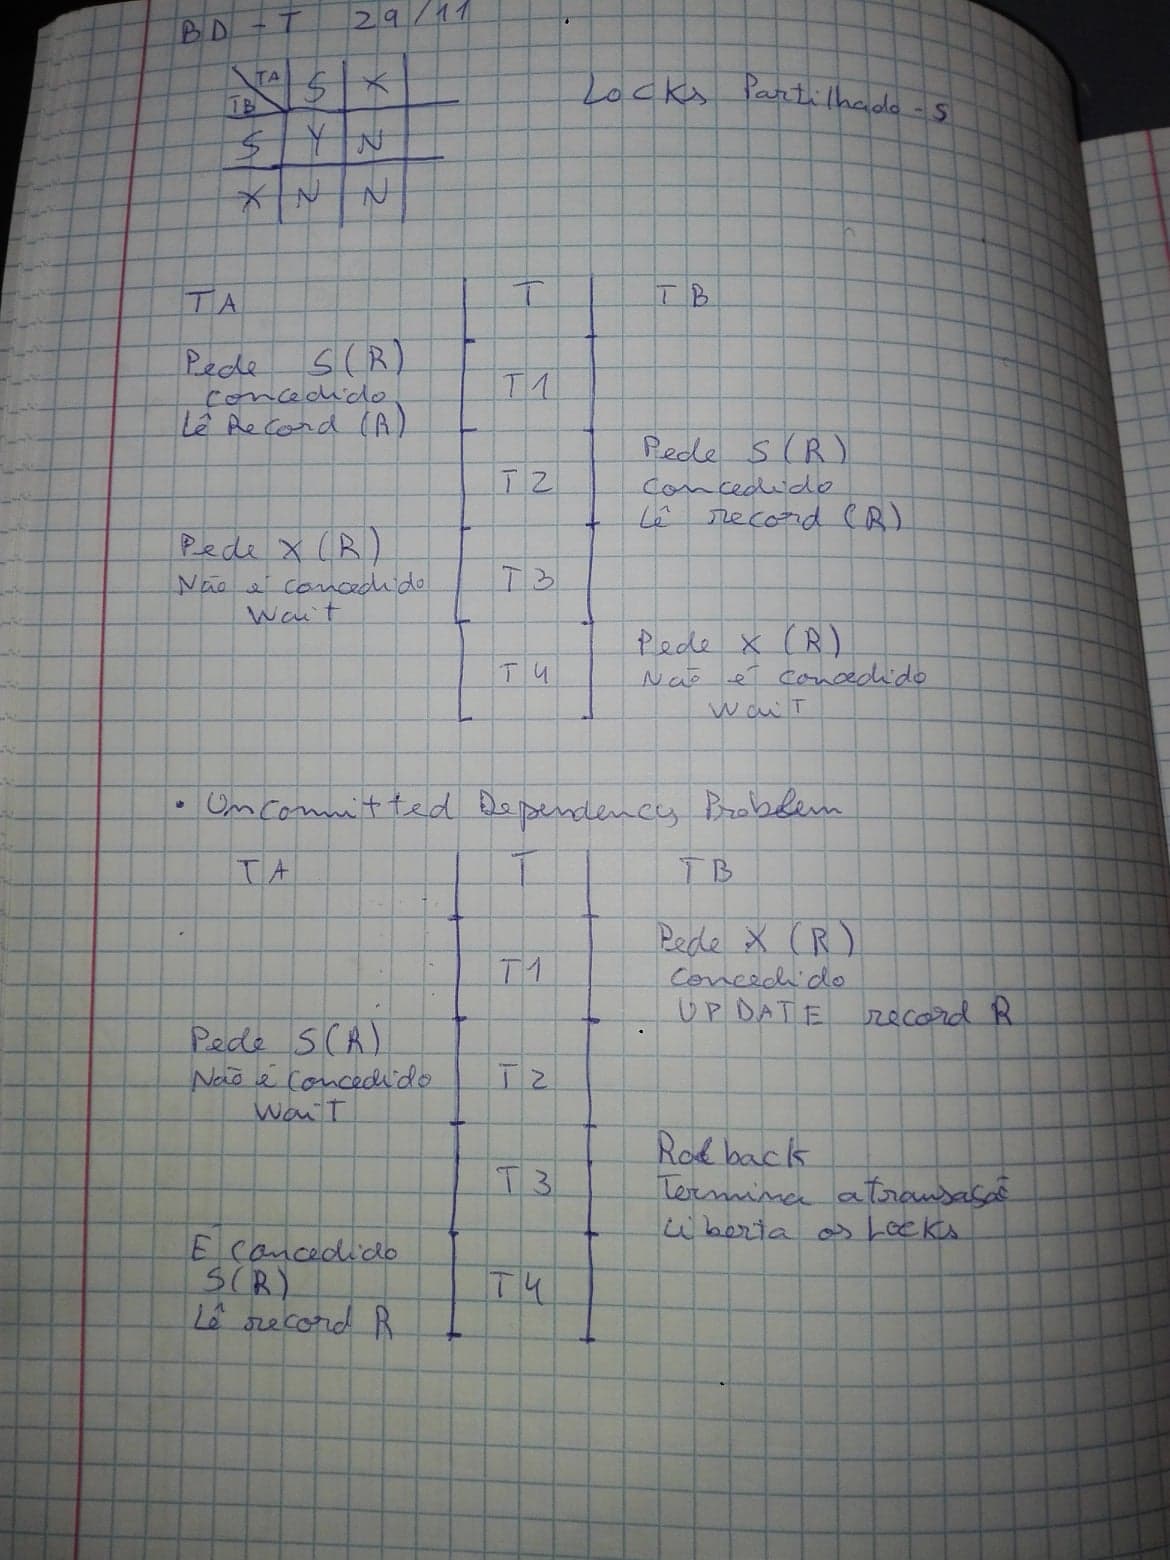 BD - T 29/11
TA S X
TB
S Y N
X N N
Locks Partilhado - S
TA T TB
Pede S(R)
concedido
Lê Record (R)
T1
T2
Pede S(R)
concedido
Lê record (R)
Pede X(R)
Não é concedido
Wait
T3
T4
Pede X (R)
Não é concedido
Wait
• Uncomitted Dependency Problem
TA T TB
T1
Pede X (R)
concedido
UPDATE record R
Pede S(R)
Não é concedido
Wait
T2
T3
Rolback
Termina a transasão
Liberta os Locks
É concedido
S(R)
Lê record R
T4